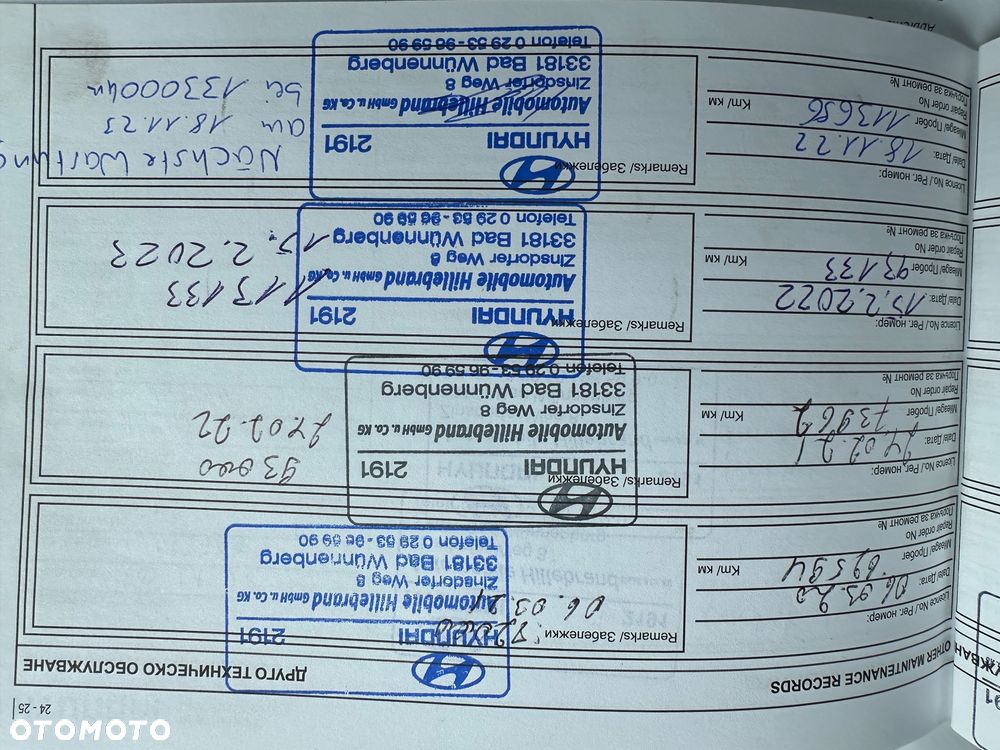 24 - 25
OTHER MAINTENANCE RECORDS
ДРУГО ТЕХНИЧЕСКО ОБСЛУЖВАНЕ
Licence No./ Рег. номер:
Date/ Дата: 06.03.20
Mileage/ Пробег Km/ км
Repair order No
Поръчка за ремонт №
Remarks/ Забележки
06.03.21
HYUNDAI 2191
Automobile Hillebrand GmbH u. Co. KG
Zinsdorfer Weg 8
33181 Bad Wünnenberg
Telefon 0 29 53 - 96 59 90
Licence No./ Рег. номер:
Date/ Дата: 24.02.21
Mileage/ Пробег 73962 Km/ км
Repair order No
Поръчка за ремонт №
Remarks/ Забележки
HYUNDAI 2191
Automobile Hillebrand GmbH u. Co. KG
Zinsdorfer Weg 8
33181 Bad Wünnenberg
Telefon 0 29 53 - 96 59 90
93000
24.02.22
Licence No./ Рег. номер:
Date/ Дата: 15.2.2022
Mileage/ Пробег 93133 Km/ км
Repair order No
Поръчка за ремонт №
Remarks/ Забележки
HYUNDAI 2191
Automobile Hillebrand GmbH u. Co. KG
Zinsdorfer Weg 8
33181 Bad Wünnenberg
Telefon 0 29 53 - 96 59 90
113133
15.2.2023
Licence No./ Рег. номер:
Date/ Дата: 18.11.22
Mileage/ Пробег 113656 Km/ км
Repair order No
Поръчка за ремонт №
Remarks/ Забележки
HYUNDAI 2191
Automobile Hillebrand GmbH u. Co. KG
Zinsdorfer Weg 8
33181 Bad Wünnenberg
Telefon 0 29 53 - 96 59 90
Nächste Wartung
am 18.11.23
bei 133000km
OTOMOTO